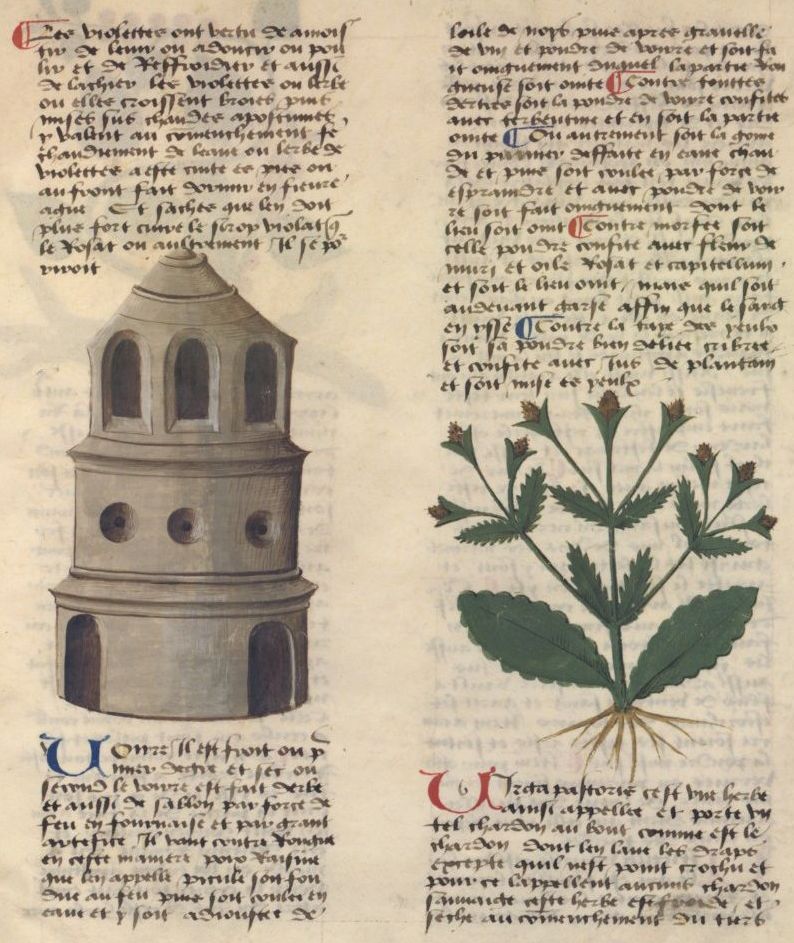 Les violettes ont vertu de amois
tir de lenir ou adoucir ou pou
lir et de Reffroidier et aussi
de lachier les violettes ou lerbe
ou elles croissent broiés puis
mises sus chaudes apostumes
y valent au commenchement se
chaudement de leaue ou lerbe de
violettes a este cuite es pies ou
au front fait dormir en fieure
ague Et saches que len doit
plus fort cuire le sirop violat q̄
le Rosat ou aultrement Il se po
rriroit
Uoirre Il est froit ou p
mier degre et sec ou
second le voirre est fait derbe
et aussi de sablon par force de
feu en fournaise et par grant
artefice Il vaut contre Rongne
en ceste maniere poix Raisine
que len appelle picule soit fon
due au feu puis soit coulee en
eaue et y soit adioustee de
loile de nois puis apres grauelle
de vin et poudre de voirre et soit fa
it oinguement duquel la partie Ron
gneuse soit ointe Contre touttes
dertres soit la poudre de voirre confite
auec terbentine et en soit la partie
ointe Ou autrement soit la gome
du prunier deffaite en eaue chau
de et puis soit coulee par force de
espraindre et auec poudre de voir
re soit fait oinguement dont le
lieu soit oint Contre morfee soit
celle poudre confite auec fleur de
muri et oile Rosat et capitellum
et soit le lieu oint mais quil soit
audeuant garse affin que le sang
en ysse Contre la taye des yeulx
soit sa poudre bien deliee cribree
et confite auec Jus de plantain
et soit mise es yeulx
Uirga pastoris cest vne herbe
ainsi appellee et porte vn
tel chardon au bout comme est le
chardon dont len laue les draps
excepte quil nest point crochu et
pour ce lappellent aucuns chardon
sauuaige ceste herbe est froide et
seche au commenchement du tiers